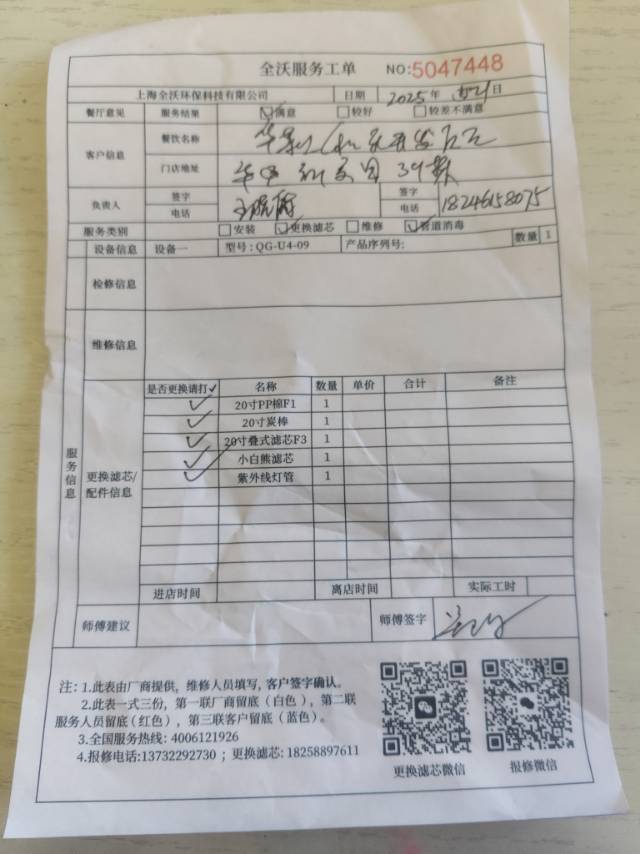 全沃服务工单 NO:5047448
上海全沃环保科技有限公司 日期 2025年 日
餐厅意见 服务结果 ☑满意 □较好 □较差不满意
客户信息 餐饮名称
门店地址 39栋
负责人 签字 签字
电话 电话 18246158075
服务类别 □安装 ☑更换滤芯 □维修 ☑管道消毒
设备信息 设备一 型号:QG-U4-09 产品序列号: 数量 1
检修信息
维修信息
服务信息
更换滤芯/配件信息
是否更换请打✓ 名称 数量 单价 合计 备注
✓ 20寸PP棉F1 1
✓ 20寸炭棒 1
✓ 20寸叠式滤芯F3 1
✓ 小白熊滤芯 1
✓ 紫外线灯管 1
进店时间 离店时间 实际工时
师傅建议 师傅签字
注:1.此表由厂商提供，维修人员填写，客户签字确认。
2.此表一式三份，第一联厂商留底（白色），第二联
服务人员留底(红色），第三联客户留底（蓝色）。
3.全国服务热线: 4006121926
4.报修电话:13732292730 ; 更换滤芯: 18258897611
更换滤芯微信 报修微信